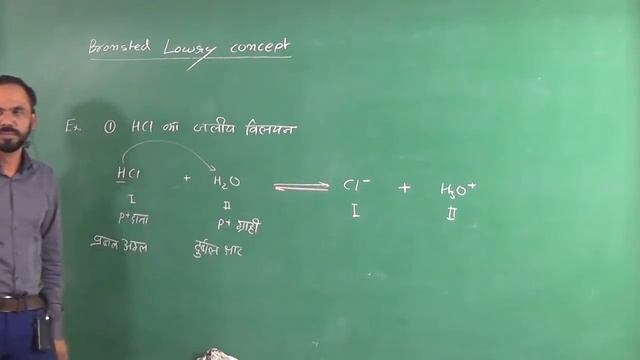 Bronsted Lowry concept
Ex. ① HCl का जलीय विलयन
HCl + H₂O ⇌ Cl⁻ + H₃O⁺
I II I II
P⁺ दाता P⁺ ग्राही
प्रबल अम्ल दुर्बल क्षार